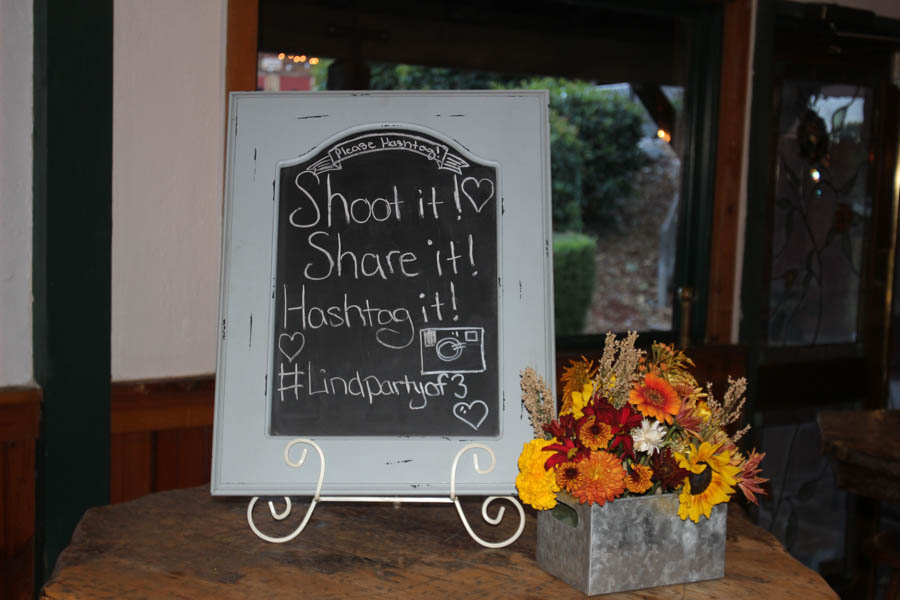 Please Hashtag!
Shoot it!
Share it!
Hashtag it!
#Lindpartyof3